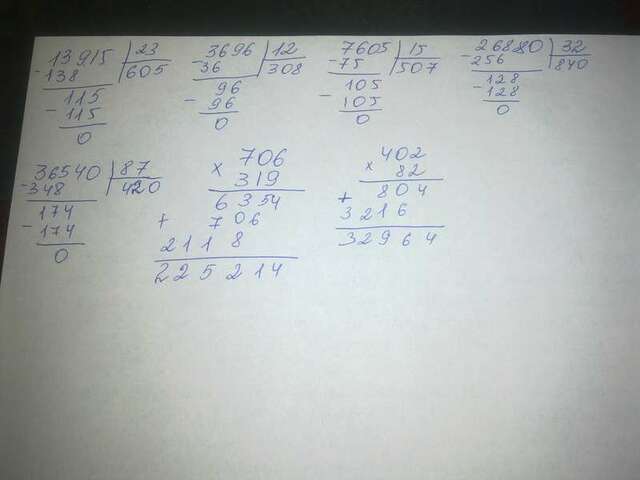 13915 | 23
- 138 | 605
115
- 115
0
3696 | 12
- 36 | 308
96
- 96
0
7605 | 15
- 75 | 507
105
- 105
0
26880 | 32
- 256 | 840
128
- 128
0
36540 | 87
- 348 | 420
174
- 174
0
706
x 319
6354
+ 706
2118
225214
402
x 82
804
+ 3216
32964